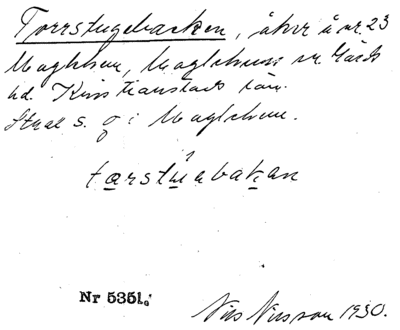 Torrstugebacken, åker å nr. 23
Maglehem, Maglehems sn Gärds
hd. Kristianstads län.
Strax s. i Maglehem.
tarstuabakan
Nr 5351.
Nils Nilsson 1930.